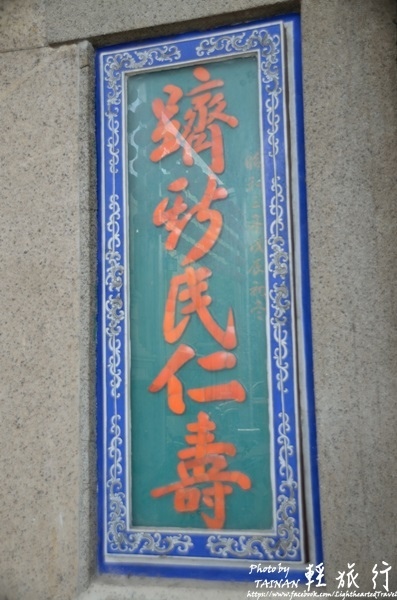 躋新民仁壽
Photo by
TAINAN 輕旅行
https://www.facebook.com/LightheartedTravel